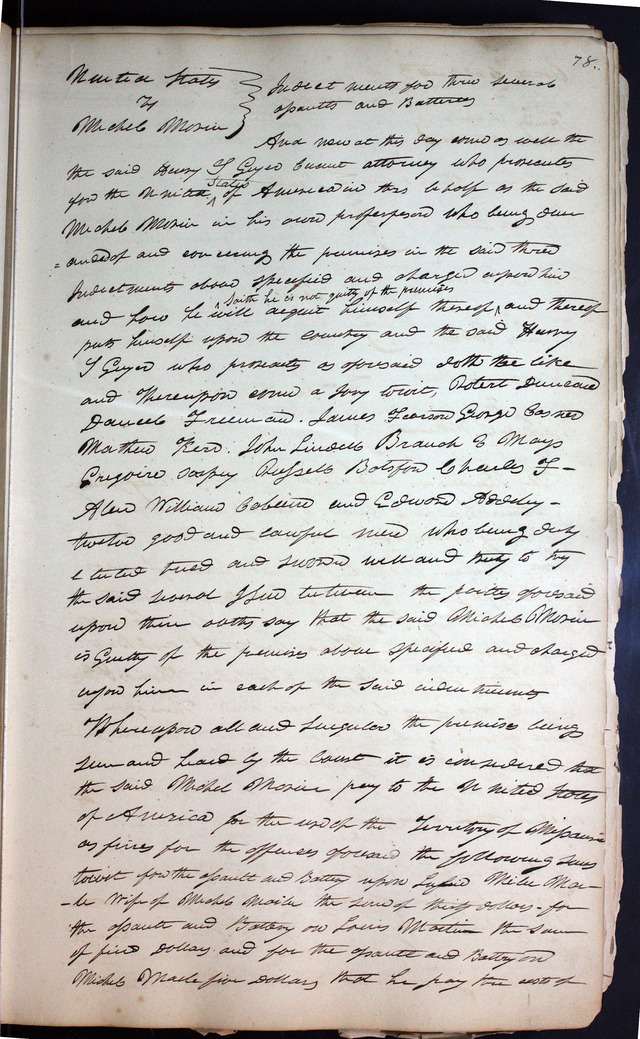 78.
United States
vs
Michel Morin
Indictments for three several
assaults and Batteries
And now at this day comes as well the
the said Henry S Geyer Circuit attorney who prosecutes
for the United States of America in this behalf as the said
Michel Morin in his own proper person who being dem
=anded of and concerning the premises in the said three
Indictments above specified and charged upon him
and how he will acquit himself thereof saith he is not guilty of the premises and thereof
puts himself upon the country and the said Henry
S Geyer who prosecuts as aforesaid doth the like
and Thereupon come a Jury towit, Robert Duncan
Daniel Freeman. James George
Mathew Kerr. John Lindell Branch E Mays
Gregoire Russell Charles F
William and Edward
twelve good and lawful men who being duly
elected tried and sworn well and truly to try
the said several Issue between the parties aforesaid
upon their oaths say that the said Michel Morin
is Guilty of the premises above specified and charged
upon him in each of the said indictments
Whereupon all and singular the premises being
seen and heard by the Court it is considered that
the said Michel Morin pay to the United States
of America for the use of the Territory of Missouri
as fines for the offences aforesaid the following sums
towit for the assault and Battery upon Mar-
-le Wife of Michel the sum of dollars - for
the assault and Battery on Louis Martin the sum
of five Dollars and for the assault and Battery on
Michel Marle five Dollars that he pay the costs of